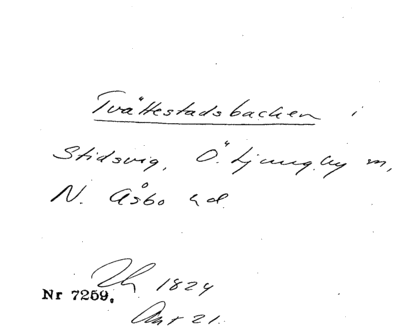 Tvättestadsbacken i
Stidsvig, Ö. Ljungby sn,
N. Åsbo hd.
1824
Nr 7259.
21.